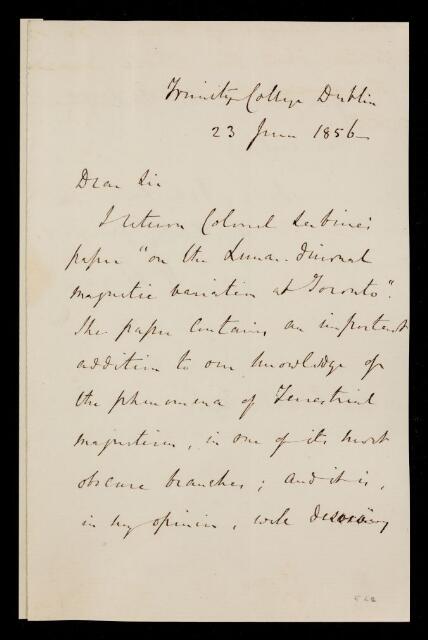 Trinity College Dublin
23 June 1856
Dear Sir
I return Colonel Sabine's
paper "on the Lunar-diurnal
magnetic variation at Toronto".
The paper contains an important
addition to our knowledge of
the phenomena of Terrestrial
magnetism, in one of its most
obscure branches; and it is,
in my opinion, well deserving